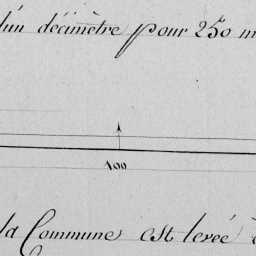 d'un décimètre pour 250 m
100
la Commune est levée